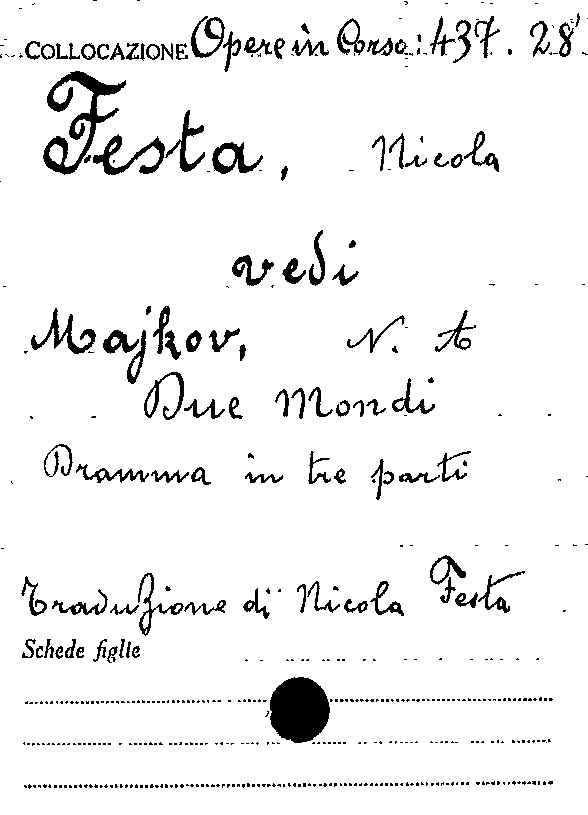 COLLOCAZIONE Opere in Corso: 437. 28'
Festa, Nicola
vedi
Majkov, N. A
Due Mondi
Dramma in tre parti
Traduzione di Nicola Festa
Schede figlie